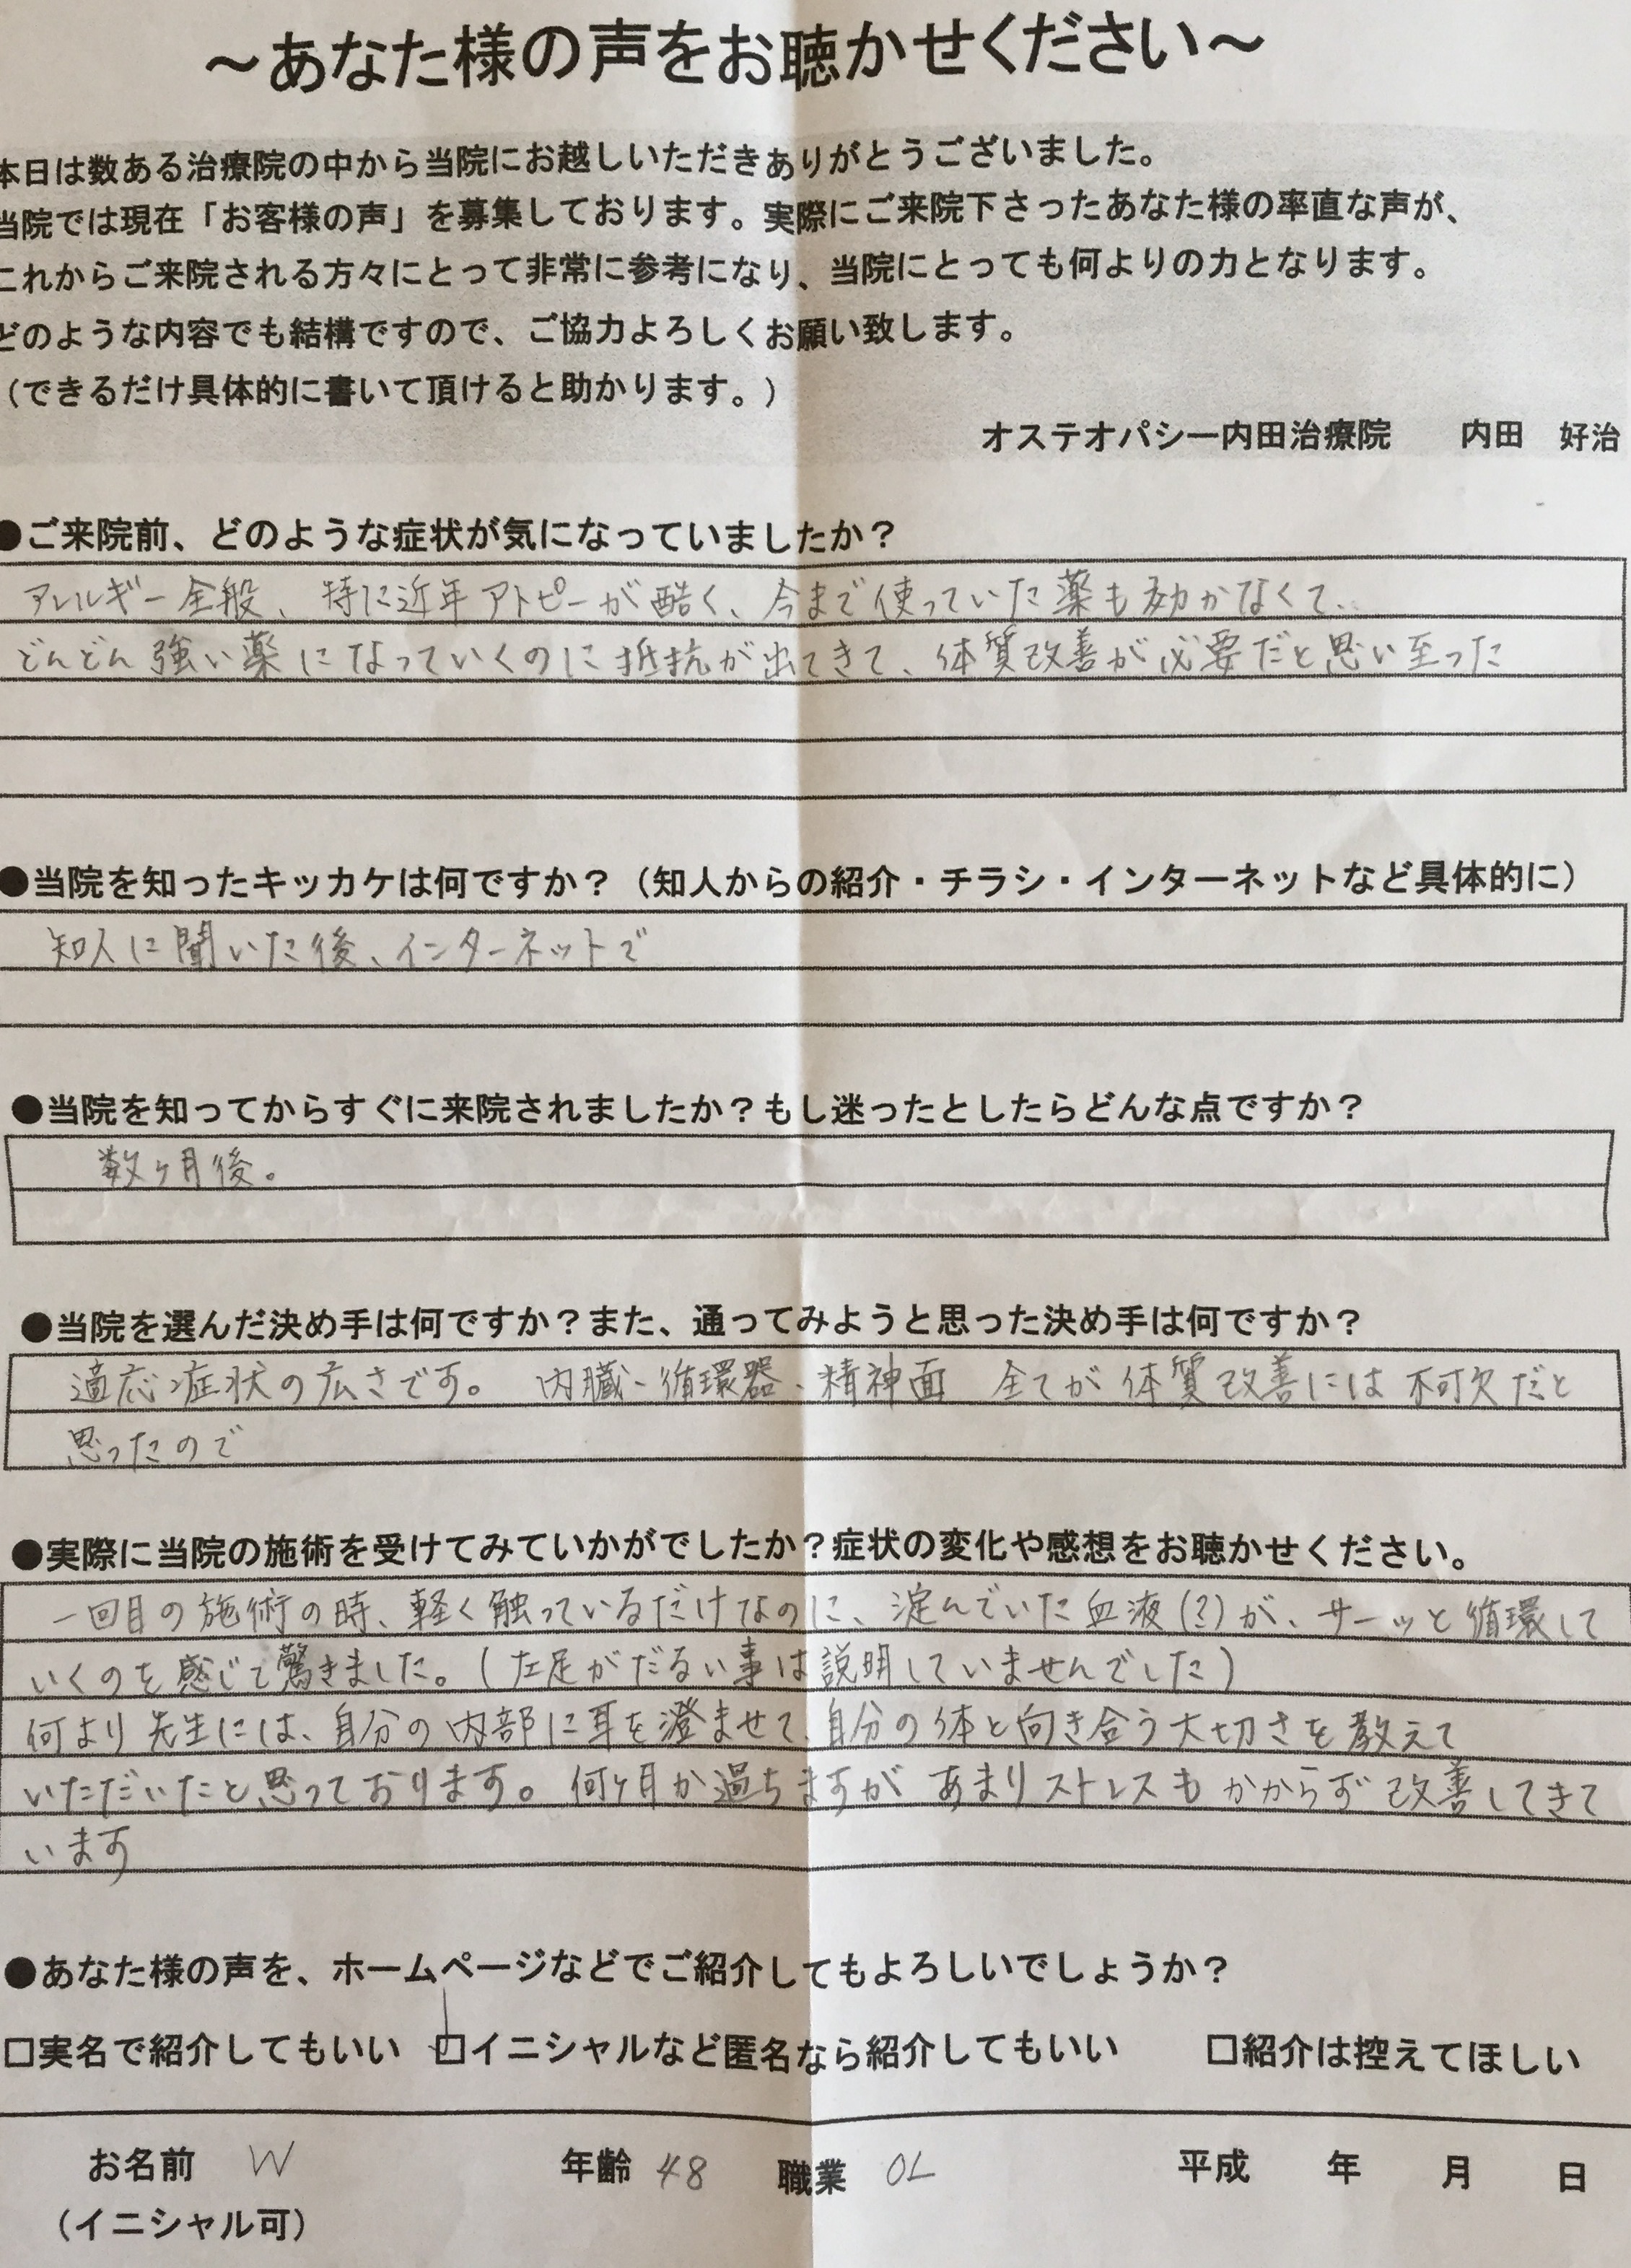 ～あなた様の声をお聴かせください～
本日は数ある治療院の中から当院にお越しいただきありがとうございました。
当院では現在「お客様の声」を募集しております。実際にご来院下さったあなた様の率直な声が、
これからご来院される方々にとって非常に参考になり、当院にとっても何よりの力となります。
どのような内容でも結構ですので、ご協力よろしくお願い致します。
（できるだけ具体的に書いて頂けると助かります。）
オステオパシー内田治療院　　内田　好治
●ご来院前、どのような症状が気になっていましたか？
アレルギー全般、特に近年アトピーが酷く、今まで使っていた薬も効かなくて、
どんどん強い薬になっていくのに抵抗が出てきて、体質改善が必要だと思い至った
●当院を知ったキッカケは何ですか？（知人からの紹介・チラシ・インターネットなど具体的に）
知人に聞いた後、インターネットで
●当院を知ってからすぐに来院されましたか？もし迷ったとしたらどんな点ですか？
数ヶ月後。
●当院を選んだ決め手は何ですか？また、通ってみようと思った決め手は何ですか？
適応症状の広さです。　内臓、循環器、精神面　全てが体質改善には不可欠だと
思ったので
●実際に当院の施術を受けてみていかがでしたか？症状の変化や感想をお聴かせください。
一回目の施術の時、軽く触っているだけなのに、淀んでいた血液(?)が、サーッと循環して
いくのを感じて驚きました。(左足がだるい事は説明していませんでした)
何より先生には、自分の内部に耳を澄ませて、自分の体と向き合う大切さを教えて
いただいたと思っております。何ヶ月か過ちますが あまりストレスもかからず改善してきて
います
●あなた様の声を、ホームページなどでご紹介してもよろしいでしょうか？
□実名で紹介してもいい　☑イニシャルなど匿名なら紹介してもいい　　□紹介は控えてほしい
お名前　W　　年齢　48　　職業　OL　　平成　　年　　月　　日
（イニシャル可）